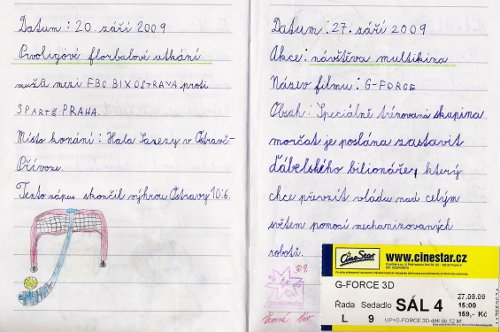 Datum: 20. září 2009
Prvoligové florbalové utkání
mužů mezi FBC BIXOSTRAVA proti
SPARTĚ PRAHA.
Místo konání: Hala Sarezy v Ostravě-
Přívoze.
Tento zápas skončil výhrou Ostravy 10:6.
Datum: 27. září 2009
Akce: návštěva multikina
Název filmu: G-FORCE
Obsah: Speciálně trénovaná skupina
morčat je poslána zastavit
ďábelského bilionáře, který
chce převzít vládu nad celým
světem pomocí mechanizovaných
robotů.
30.9.
CineStar
www.cinestar.cz
G-FORCE 3D
27.09.09
Řada Sedadlo SÁL 4
15:00
L 9
169,- Kč